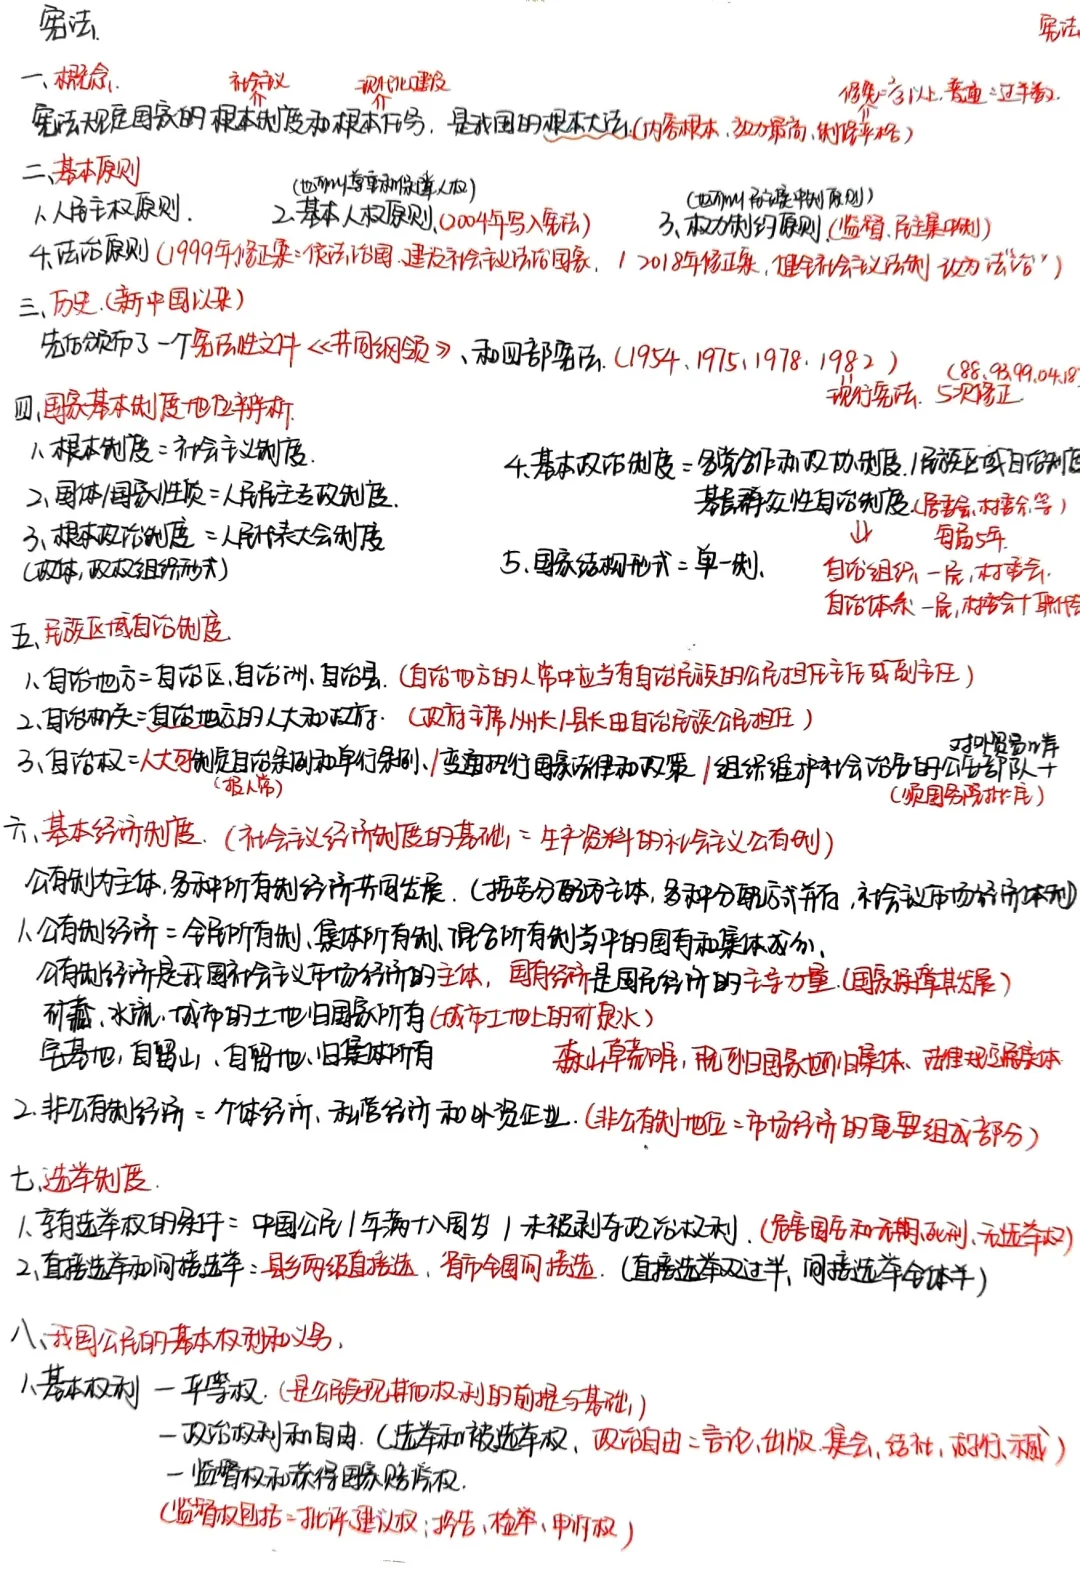 宪法.
宪法
一、概念.
社会主义
现代化建设
修宪=2/3以上.普通=过半数.
宪法规定国家的根本制度和根本任务,是我国的根本大法.(内容根本、效力最高、制修严格)
二、基本原则
(也可叫尊重和保障人权)
(也可叫民主集中制原则)
1、人民主权原则. 2、基本人权原则.(2004年写入宪法) 3、权力制约原则.(监督、民主集中制)
4、法治原则(1999年修正案=依法治国、建设社会主义法治国家, / 2018年修正案,健全社会主义法制 改为法“治”)
三、历史.(新中国以来)
先后颁布了一个宪法性文件《共同纲领》、和四部宪法.(1954、1975、1978、1982)
(88、93、99、04、18)
现行宪法. 5次修正
四、国家基本制度地位辨析.
1、根本制度=社会主义制度.
4.基本政治制度=多党合作和政协制度./民族区域自治制度
2、国体/国家性质=人民民主专政制度.
基层群众性自治制度.(居委会、村委会、等)
3、根本政治制度=人民代表大会制度
每届5年.
(政体,政权组织形式)
5、国家结构形式=单一制.
自治组织—居,村委会.
自治体系—居,村委会+职代会
五、民族区域自治制度.
1、自治地方=自治区、自治洲、自治县.(自治地方的人常中应当有自治民族的公民担任主任或副主任)
2、自治机关=自治地方的人大和政府.(政府主席/州长/县长由自治民族公民担任)
对外贸易口岸
3、自治权=人大可制定自治条例和单行条例、/变通执行国家法律和政策 /组织维护社会治安的公安部队+
(报人常)
(须国务院批准)
六、基本经济制度.(社会主义经济制度的基础=生产资料的社会主义公有制)
公有制为主体,多种所有制经济共同发展.(按劳分配为主体,多种分配方式并存,社会主义市场经济体制)
1、公有制经济=全民所有制、集体所有制、混合所有制当中的国有和集体成分、
公有制经济是我国社会主义市场经济的主体, 国有经济是国民经济的主导力量.(国家保障其发展)
矿藏、水流、城市的土地归国家所有(城市土地上的矿泉水)
宅基地,自留山、自留地、归集体所有
森山草荒滩,既可归国家也可归集体、法律规定属集体
2、非公有制经济=个体经济、私营经济和外资企业.(非公有制地位=市场经济的重要组成部分)
七、选举制度.
1、享有选举权的条件=中国公民/年满十八周岁/未被剥夺政治权利.(危害国安和无期,死刑、无选举权)
2、直接选举和间接选举=县乡两级直接选,省市全国间接选.(直接选举双过半、间接选举全体半)
八、我国公民的基本权利和义务.
1、基本权利 —平等权.(是公民实现其他权利的前提与基础)
—政治权利和自由.(选举和被选举权、政治自由=言论、出版、集会、结社、游行、示威)
—监督权和获得国家赔偿权.
(监督权包括=批评、建议权;控告、检举、申诉权)